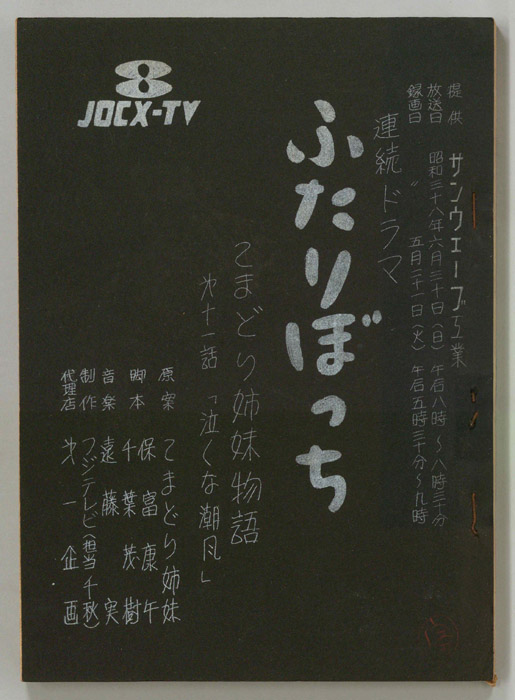 8
JOCX-TV
提供　サンウェーブ工業
放送日　昭和三十八年六月三十日(日)　午后八時〜八時三十分
録画日　〃　五月二十一日(火)　午后五時三十分〜九時
連続ドラマ
ふたりぼっち
こまどり姉妹物語
才十一話「泣くな潮風」
原案　こまどり姉妹
脚本　保富康午
千葉茂樹
音楽　遠藤実
制作　フジテレビ(担当千秋)
代理店　才一企画